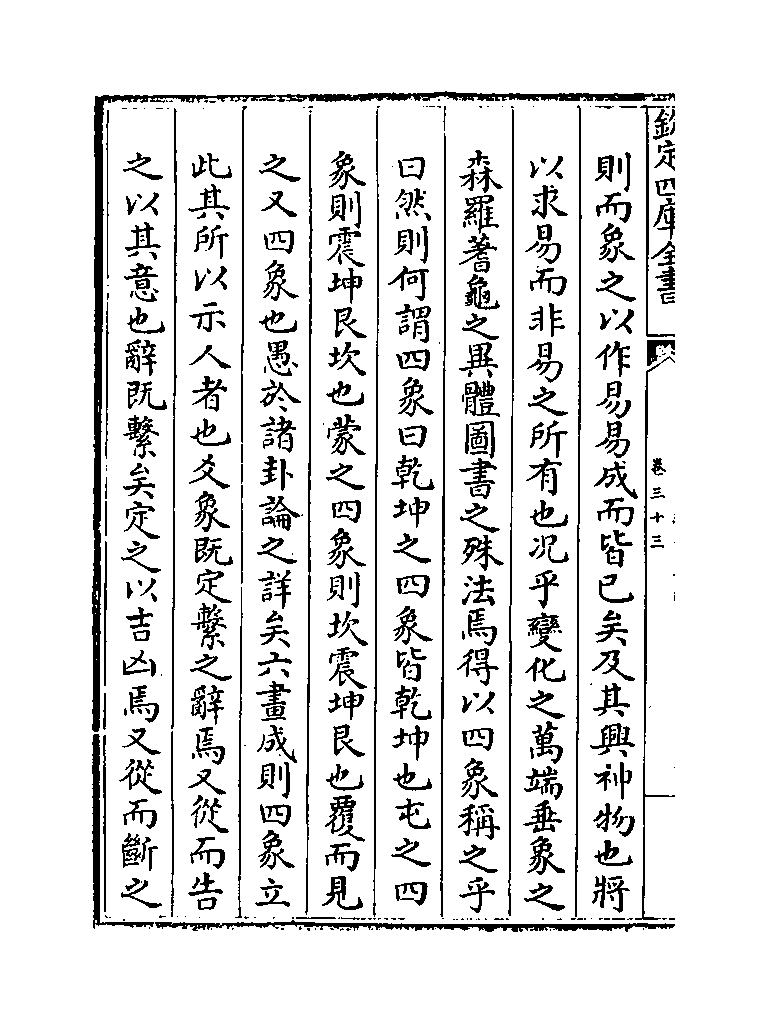 欽定四庫全書
卷三十三
則而象之以作易易成而皆已矣及其興神物也將
以求易而非易之所有也况乎變化之萬端垂象之
森羅蓍龜之異體圖書之殊法焉得以四象稱之乎
曰然則何謂四象曰乾坤之四象皆乾坤也屯之四
象則震坤艮坎也蒙之四象則坎震坤艮也覆而見
之又四象也愚於諸卦論之詳矣六畫成則四象立
此其所以示人者也爻象既定繫之辭焉又從而告
之以其意也辭既繫矣定之以吉凶焉又從而斷之